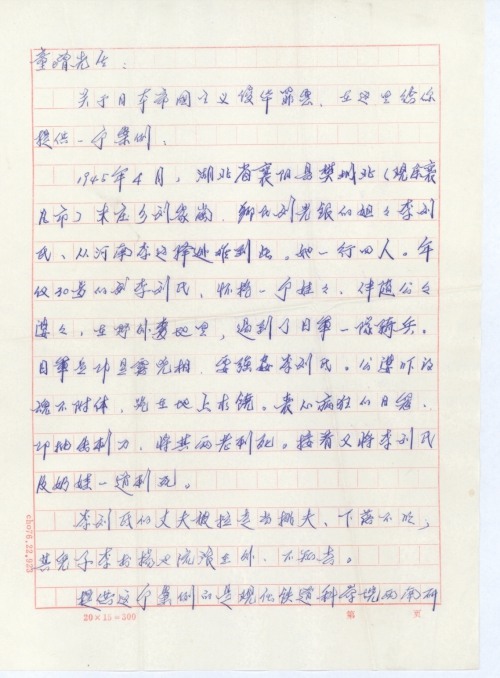 童增先生：
关于日本帝国主义侵华罪恶，在这里给你
提供一个案例：
1945年4月，湖北省襄阳县樊城北（现属襄
凡市）朱庄乡刘家岗，乡民刘老银的姐姐李刘
氏、从河南李这择逃难到此。她一行四人。年
仅30岁的李刘氏，怀抱一个娃娃，伴随公公
婆婆，在野外麦地里，遇到了日军一队骑兵。
日军兵即显露凶相，要强奸李刘氏。公婆吓的
魂不附体，跪在地上求饶。丧心病狂的日寇，
即抽出刺刀，将其两老刺死。接着又将李刘氏
及奶娃一道刺死。
李刘氏的丈夫被拉走当挑夫，下落不明，
其儿子李书杨也流浪在外，不知去。
提供这个案例的是现住铁道科学院西南研
20×15=300
第 页